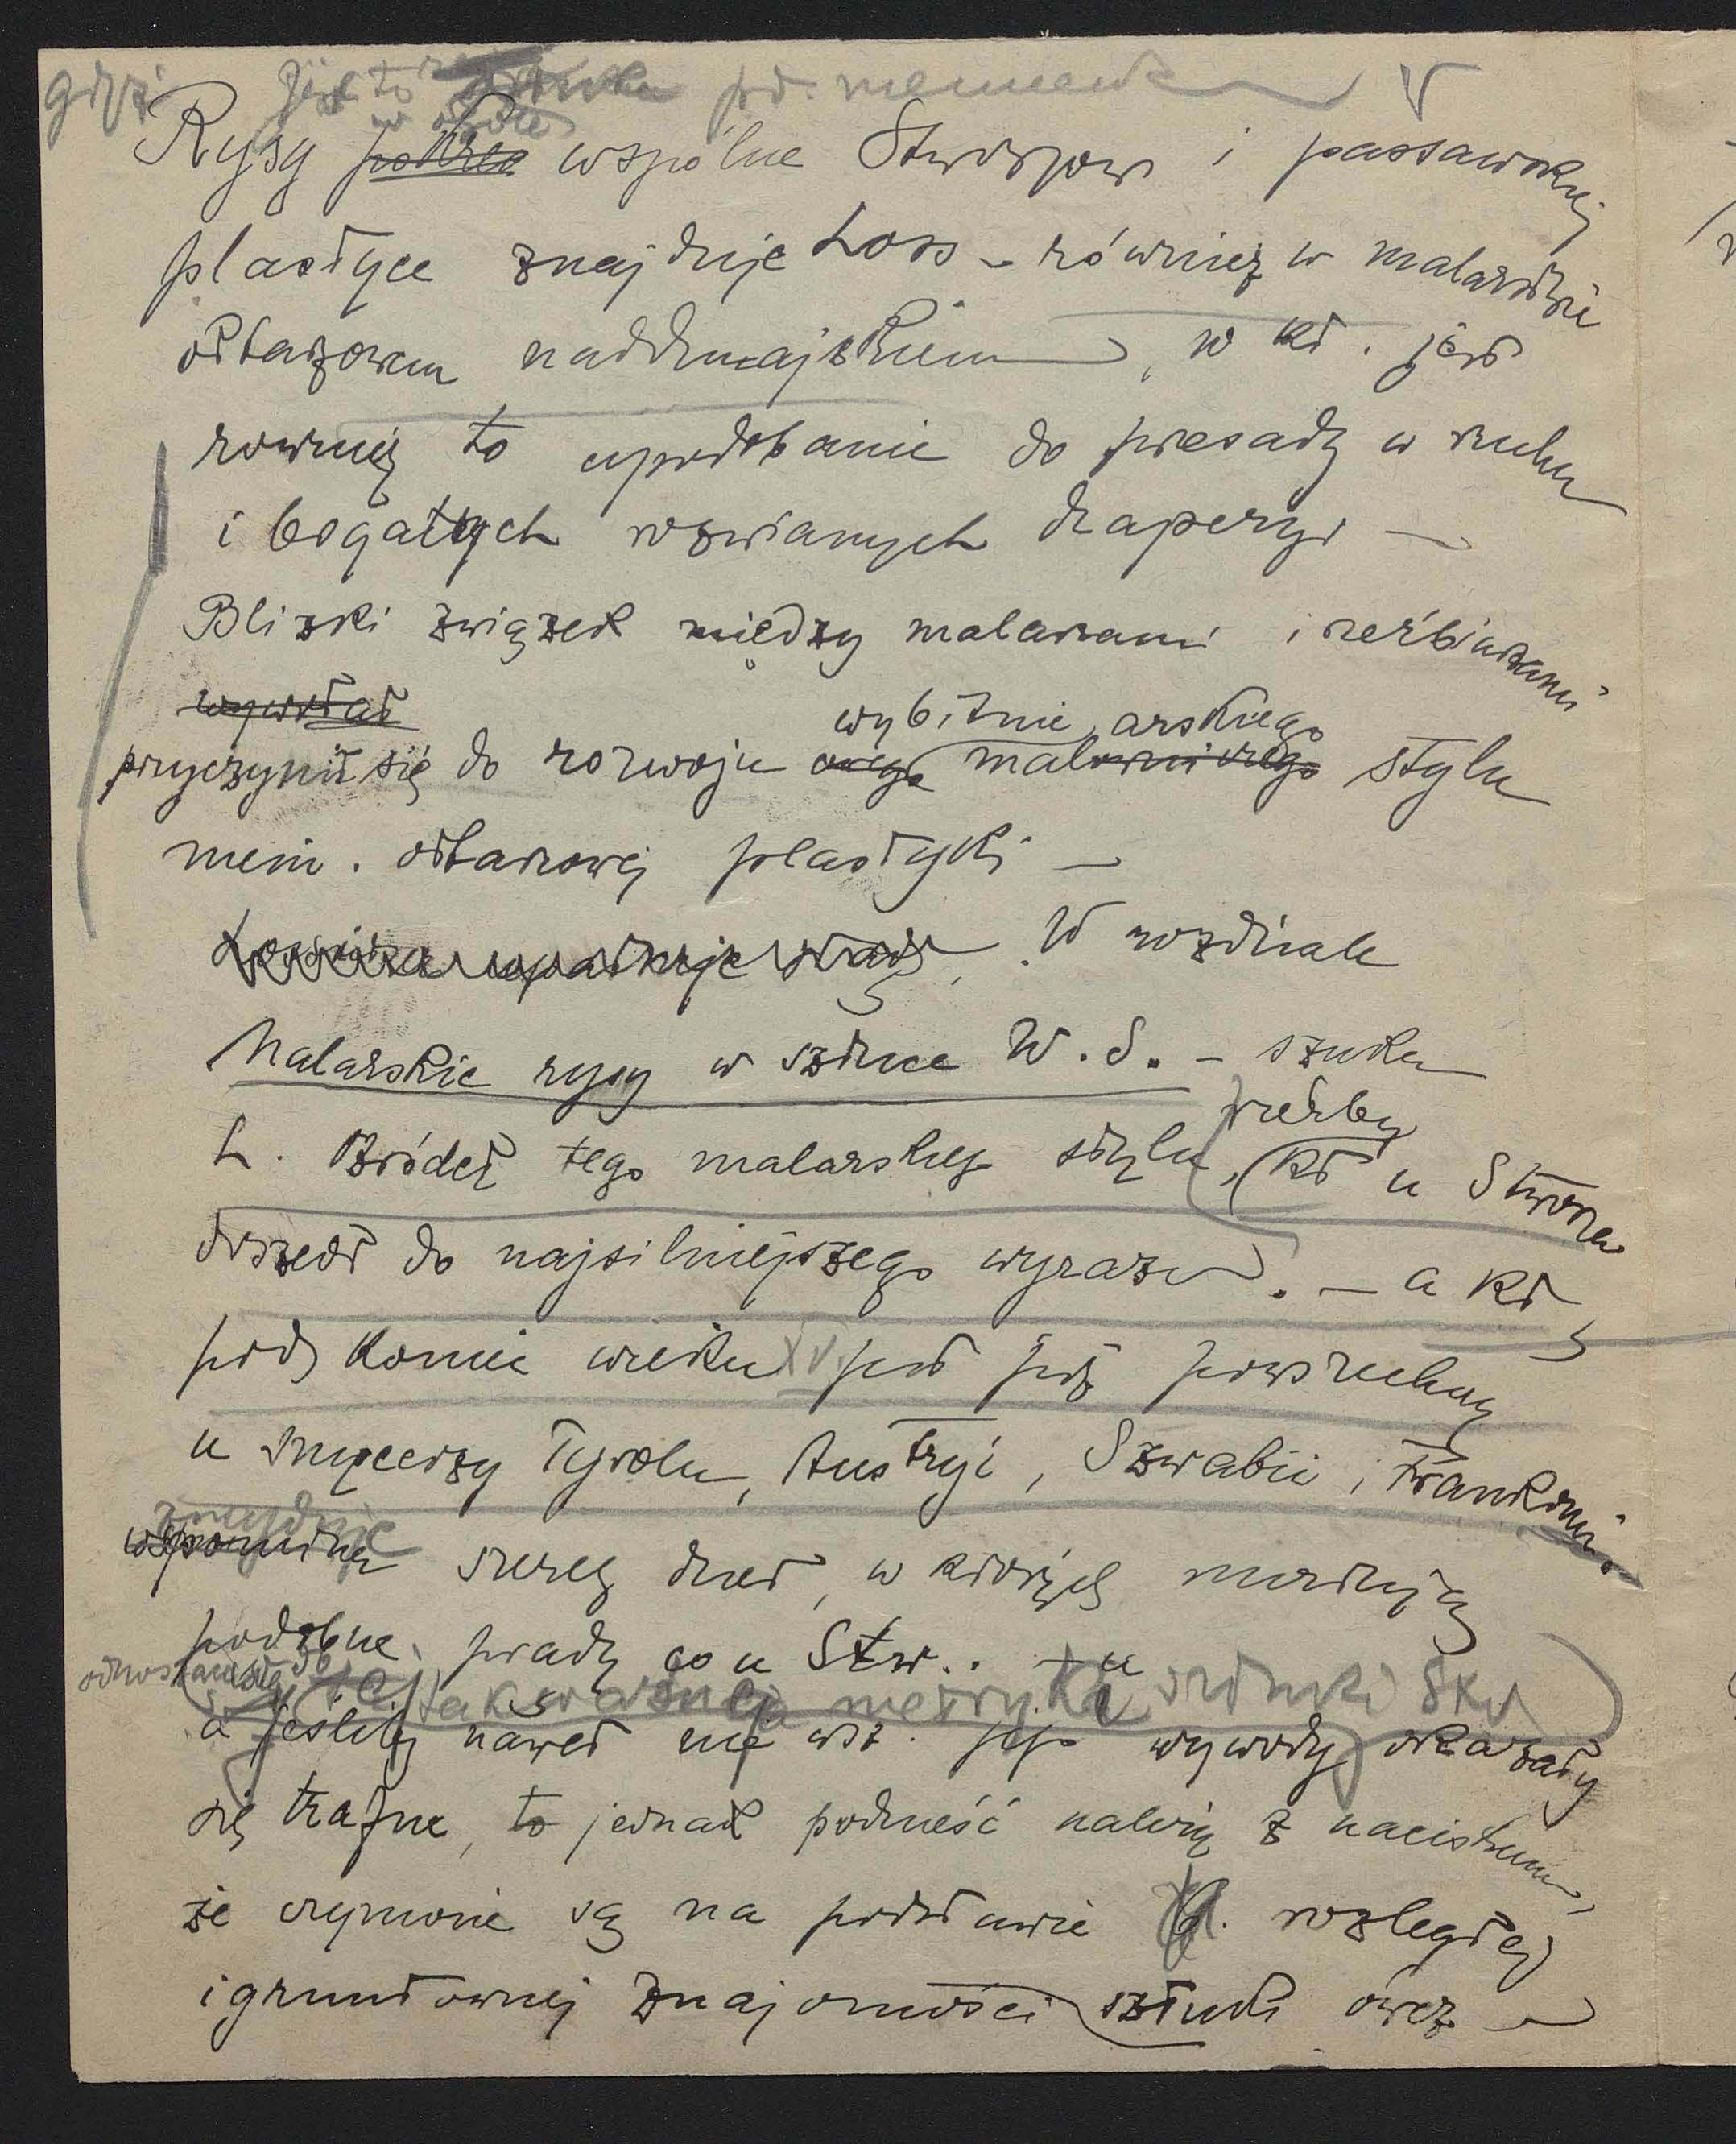 gdyż jest to w ogóle
Rysy wspólne Stwoszow i passawskiej
plastyce znajduje Loss – również w malarstwie
ołtarzowem naddunajskiem, w kt. jest
rownież to upodobanie do przesady w ruchu
i bogatych rozwianych draperyi –
Blizki związek między malarzami i rzeźbiarzami
wywołał
przyczynił się do rozwoju wybitnie malarskiego stylu
niem. ołtarzowej plastyki –
W rozdziale
Malarskie rysy w sztuce W. S. – szuka
rzeźby
L. źródeł tego malarskiego stylu, (kt u Stwosza
doszedł do najsilniejszego wyrazu. – a kt
pod koniec wieku XV jest już powszechny
u snycerzy Tyrolu, Austryi, Szwabii i Frankonii.
znajduje
wspomina szereg dzieł, w których nurtują
podobne prądy co u Stw..
odnoszące się do tak ważnej metryki sztuki Stw
a jeśliby nawet nie wsz. jego wywody okazały
się trafne, to jednak podnieść należy z naciskiem,
że czynione są na podstawie rozległej
i gruntownej znajomości sztuki ówcz